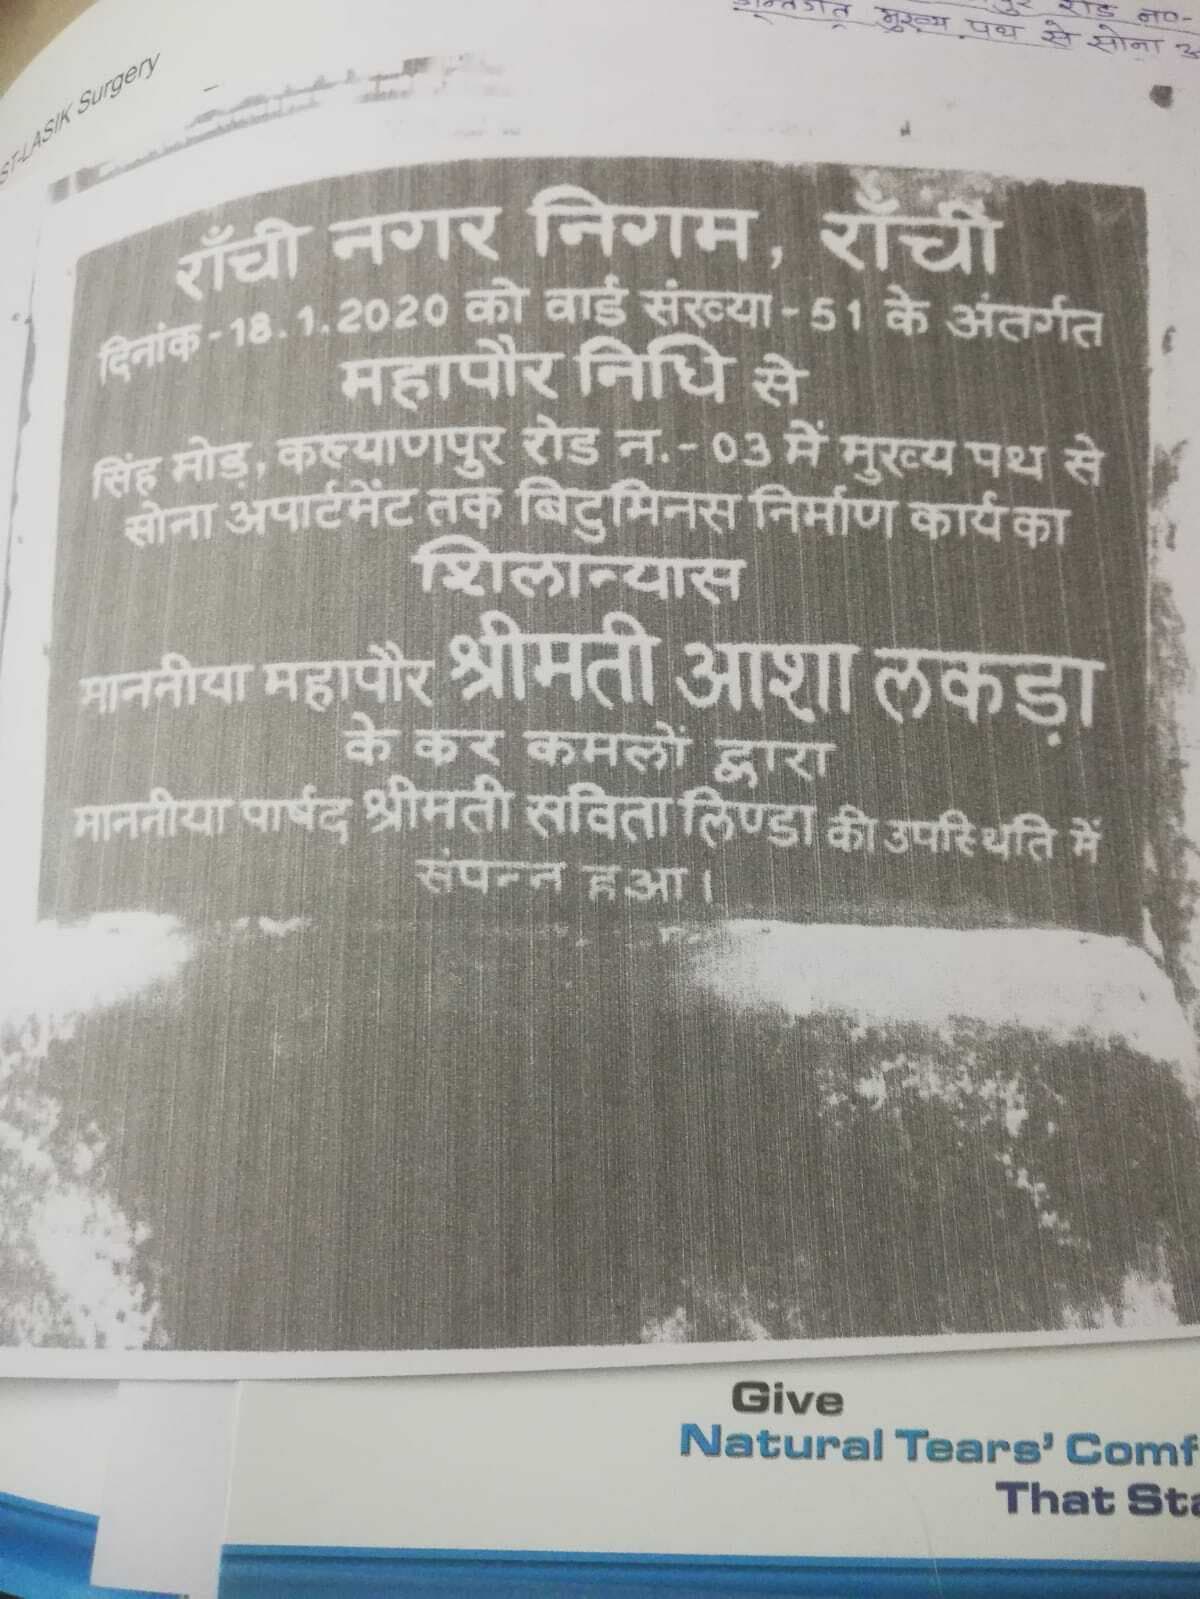 रोड न०-
मुख्य पथ से सोना
ST-LASIK Surgery
राँची नगर निगम, राँची
दिनांक-18.1.2020 को वार्ड संख्या-51 के अंतर्गत
महापौर निधि से
सिंह मोड़, कल्याणपुर रोड न.-03 में मुख्य पथ से
सोना अपार्टमेंट तक बिटुमिनस निर्माण कार्य का
शिलान्यास
माननीया महापौर श्रीमती आशा लकड़ा
के कर कमलों द्वारा
माननीया पार्षद श्रीमती सविता लिण्डा की उपस्थिति में
संपन्न हुआ।
Give
Natural Tears' Comf
That Sta